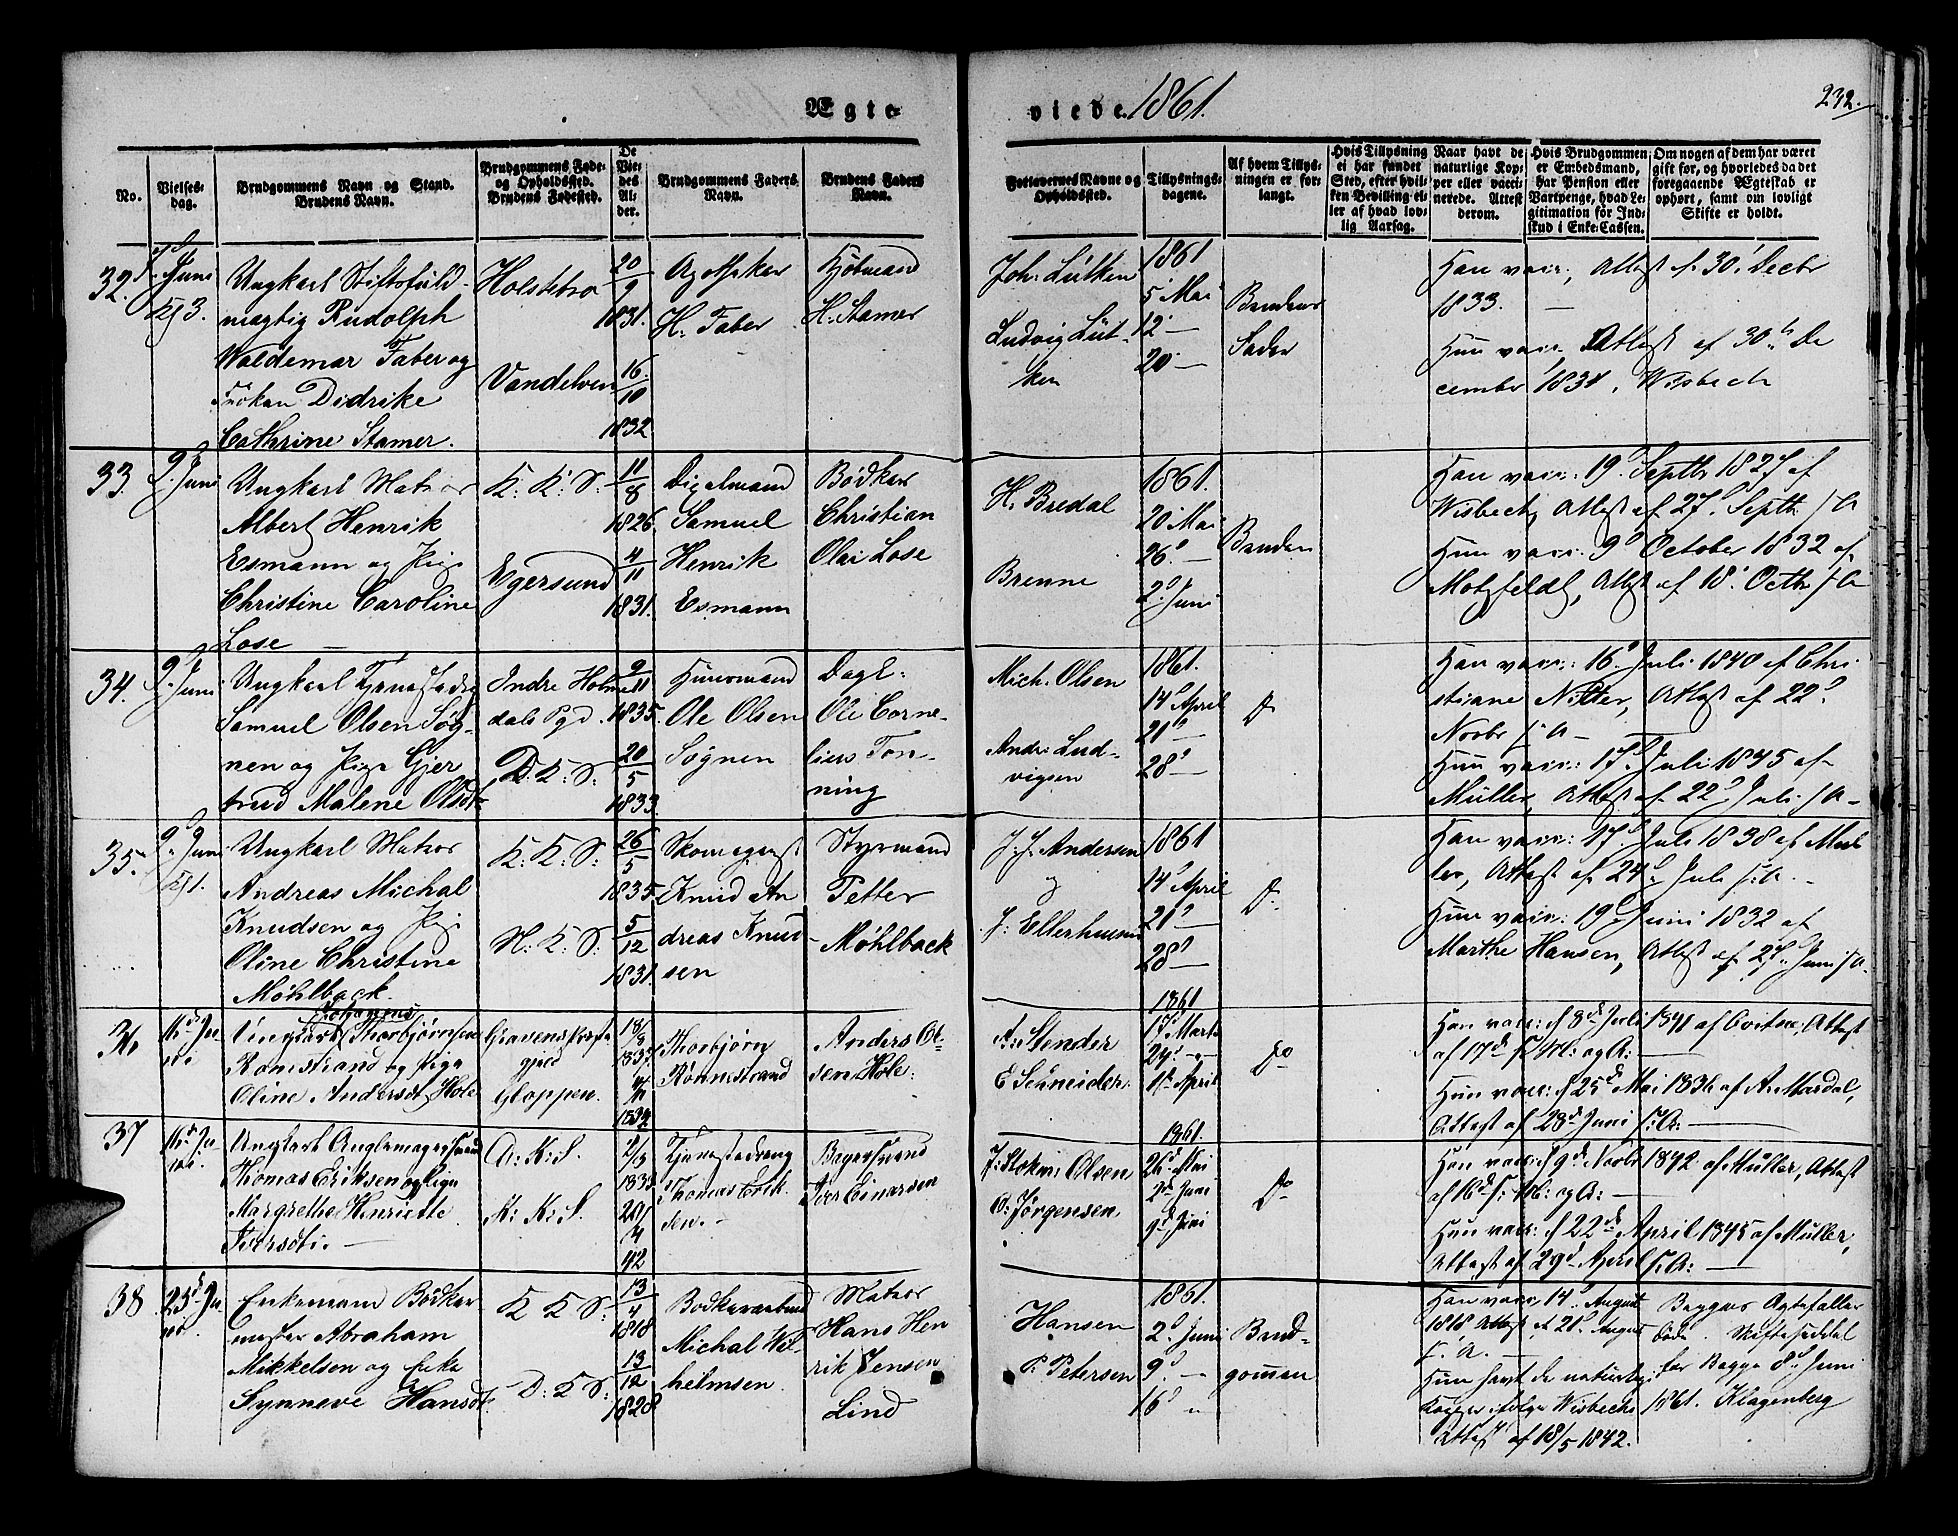 Ægteviede 1861.
232.
No.
Vielses-dag.
Brudgommens Navn og Stand.
Brudens Navn.
Brudgommens Føde-
og Opholdssted.
Brudens Fødested.
De
Vie-
des
Al-
der.
Brudgommens Faders
Navn.
Brudens Faders
Navn.
Forlovernes Navne og
Opholdssted.
Tillysnings-
dagene.
Af hvem Tillys-
ningen er for-
langt.
Hvis Tillysning
ei har fundet
Sted, efter hvil-
ken Bevilling el-
ler af hvad lov-
lig Aarsag.
Naar havt de
naturlige Kop-
per eller vacci-
nerede. Attest
derom.
Hvis Brudgommen
er Embedsmand,
har Pension eller
Vartpenge, hvad Le-
gitimation for Ind-
skud i Enke-Cassen.
Om nogen af dem har været
gift før, og hvorledes da det
foregaaende Ægteskab er
ophørt, samt om lovligt
Skifte er holdt.
32.
Juni
Kl 3.
Ungkarl Stiftsfuld-
mægtig Rudolph
Waldemar Faber og
Frøken Didrike
Cathrine Stamer.
Holstebro
Vandelven
20/9
1831.
16/10
1832.
Apotheker
H. Faber
Kjøbmand
H. Stamer
Joh. Lütken
Ludvig Lüt-
ken
1861
5 Mai
12 —
20 —
Brudens
Fader
Han vacc., Attest af 30 Decbr
1833. —
Hun vacc. Attest af 30te De
cember 1834, Wisbech
33.
9d Juni
Ungkarl Matros
Albert Henrik
Esmann og Pige
Christine Caroline
Lose —
K: K: S:
Egersund
11/8
1826.
4/11
1831.
Samuel
Henrik
Esmann
Bødker
Christian
Olai Lose
H. Bredal
Brenne
1861.
20 Mai
26d —
2d Juni
Bruden
Han vacc: 19d Septbr 1827 af
Wisbech, Attest af 27d Septbr s: A
Hun vacc: 9d October 1832 af
Motzfeldt, Attest af 18 Octbr s: A
34.
9d Juni
Ungkarl Tjenestedreng
Samuel Olsen Søg-
nen og Pige Gjer
trud Malene Olsdt
Indre Holme
dals Pgd.
D: K: S:
9/11
1835.
20/5
1833
Huusmand
Ole Olsen
Søgnen
Dagl:
Ole Corne-
lius Ton-
ning
Mich. Olsen
Andr. Lud-
vigsen
1861.
14d April
21d —
28d —
Do
Han vacc: 16d Juli 1840 af Chri
stiane Nitter, Attest af 22d
Novbr s: A —
Hun vacc: 17d Juli 1845 af
Müller, Attest af 22d Juli s: A —
35.
9d Juni
Kl 1.
Ungkarl Matros
Andreas Michal
Knudsen og Pige
Oline Christine
Møhlback.
K: K: S:
N: K: S:
26/5
1835.
5/12
1831.
Skomagers
Knud An
dreas Knud-
sen
Styrmand
Petter
Møhlback
J. J. Andersen
og
J: Ellerhusen
1861
14d April
21d —
28d —
Do
Han vacc: 17d Juli 1838 af Mül
ler, Attest af 24d Juli s: A. —
Hun vacc: 19d Juni 1832 af
Marthe Hansen, Attest af 27d Juni s: A
36
16d Ju-
ni
Johannes
Ungkarl Thorbjørnsen
Rønestrand og Pige
Oline Andersdt Hole
Gravens Præste
gjeld
Gloppen.
18/8
1837
1834
Thorbjørn
Rønnestrand
Anders Ol-
sen Hole.
A: Stender
E Schneider.
1861
17d Marts
24d —
1d April
Do
Han vacc: d 8d Juli 1841 af Ovitne, Attest
af 17d s: M: og A: —
Hun vacc: d 25d Mai 1836 af A. Mardal,
Attest af 28d Juni s: A: —
37
16d Ju-
ni.
Ungkarl Anglemagersvend
Thomas Eriksen og Pige
Margrethe Henriette
Iversdt. —
A: K: S.
K: K: S.
2/3
1835
20/4
42
Tjenestedreng
Thomas Erik-
sen. —
Bagersvend
Iver Einarsen
J: Stokm: Olsen
O: Jørgensen
1861
26d Mai
2d Juni
9d Juni
Do
Han vacc: d 9d Novbr 1842 af Müller, Attest
af 16d s: M: og A: —
Hun vacc: d 22d April 1845 af Müller,
Attest af 29d April s: A: —
38
23d Ju-
ni.
Enkemand Bødker
mester Abraham
Mikkelsen og Enke
Synneve Hansdt.
K K S:
D: K S:
13/4
1818
13/12
1828
Bødkersvend
Michal Wil-
helmsen.
Matros
Hans Hen
rik Jensen
Lind
Hansen
P: Petersen
1861.
2d Juni
9d —
16d "
Brud-
gommen
Han vacc. 14d August
1818, Attest d. 21d August
s. A. —
Hun havt de naturlige
Kopper ifølge Wisbechs
Attest af 18/5 1842.
Begges Ægtefæller
døde. Skifteseddel
for Begge 8d Juni
1861. Klagenberg